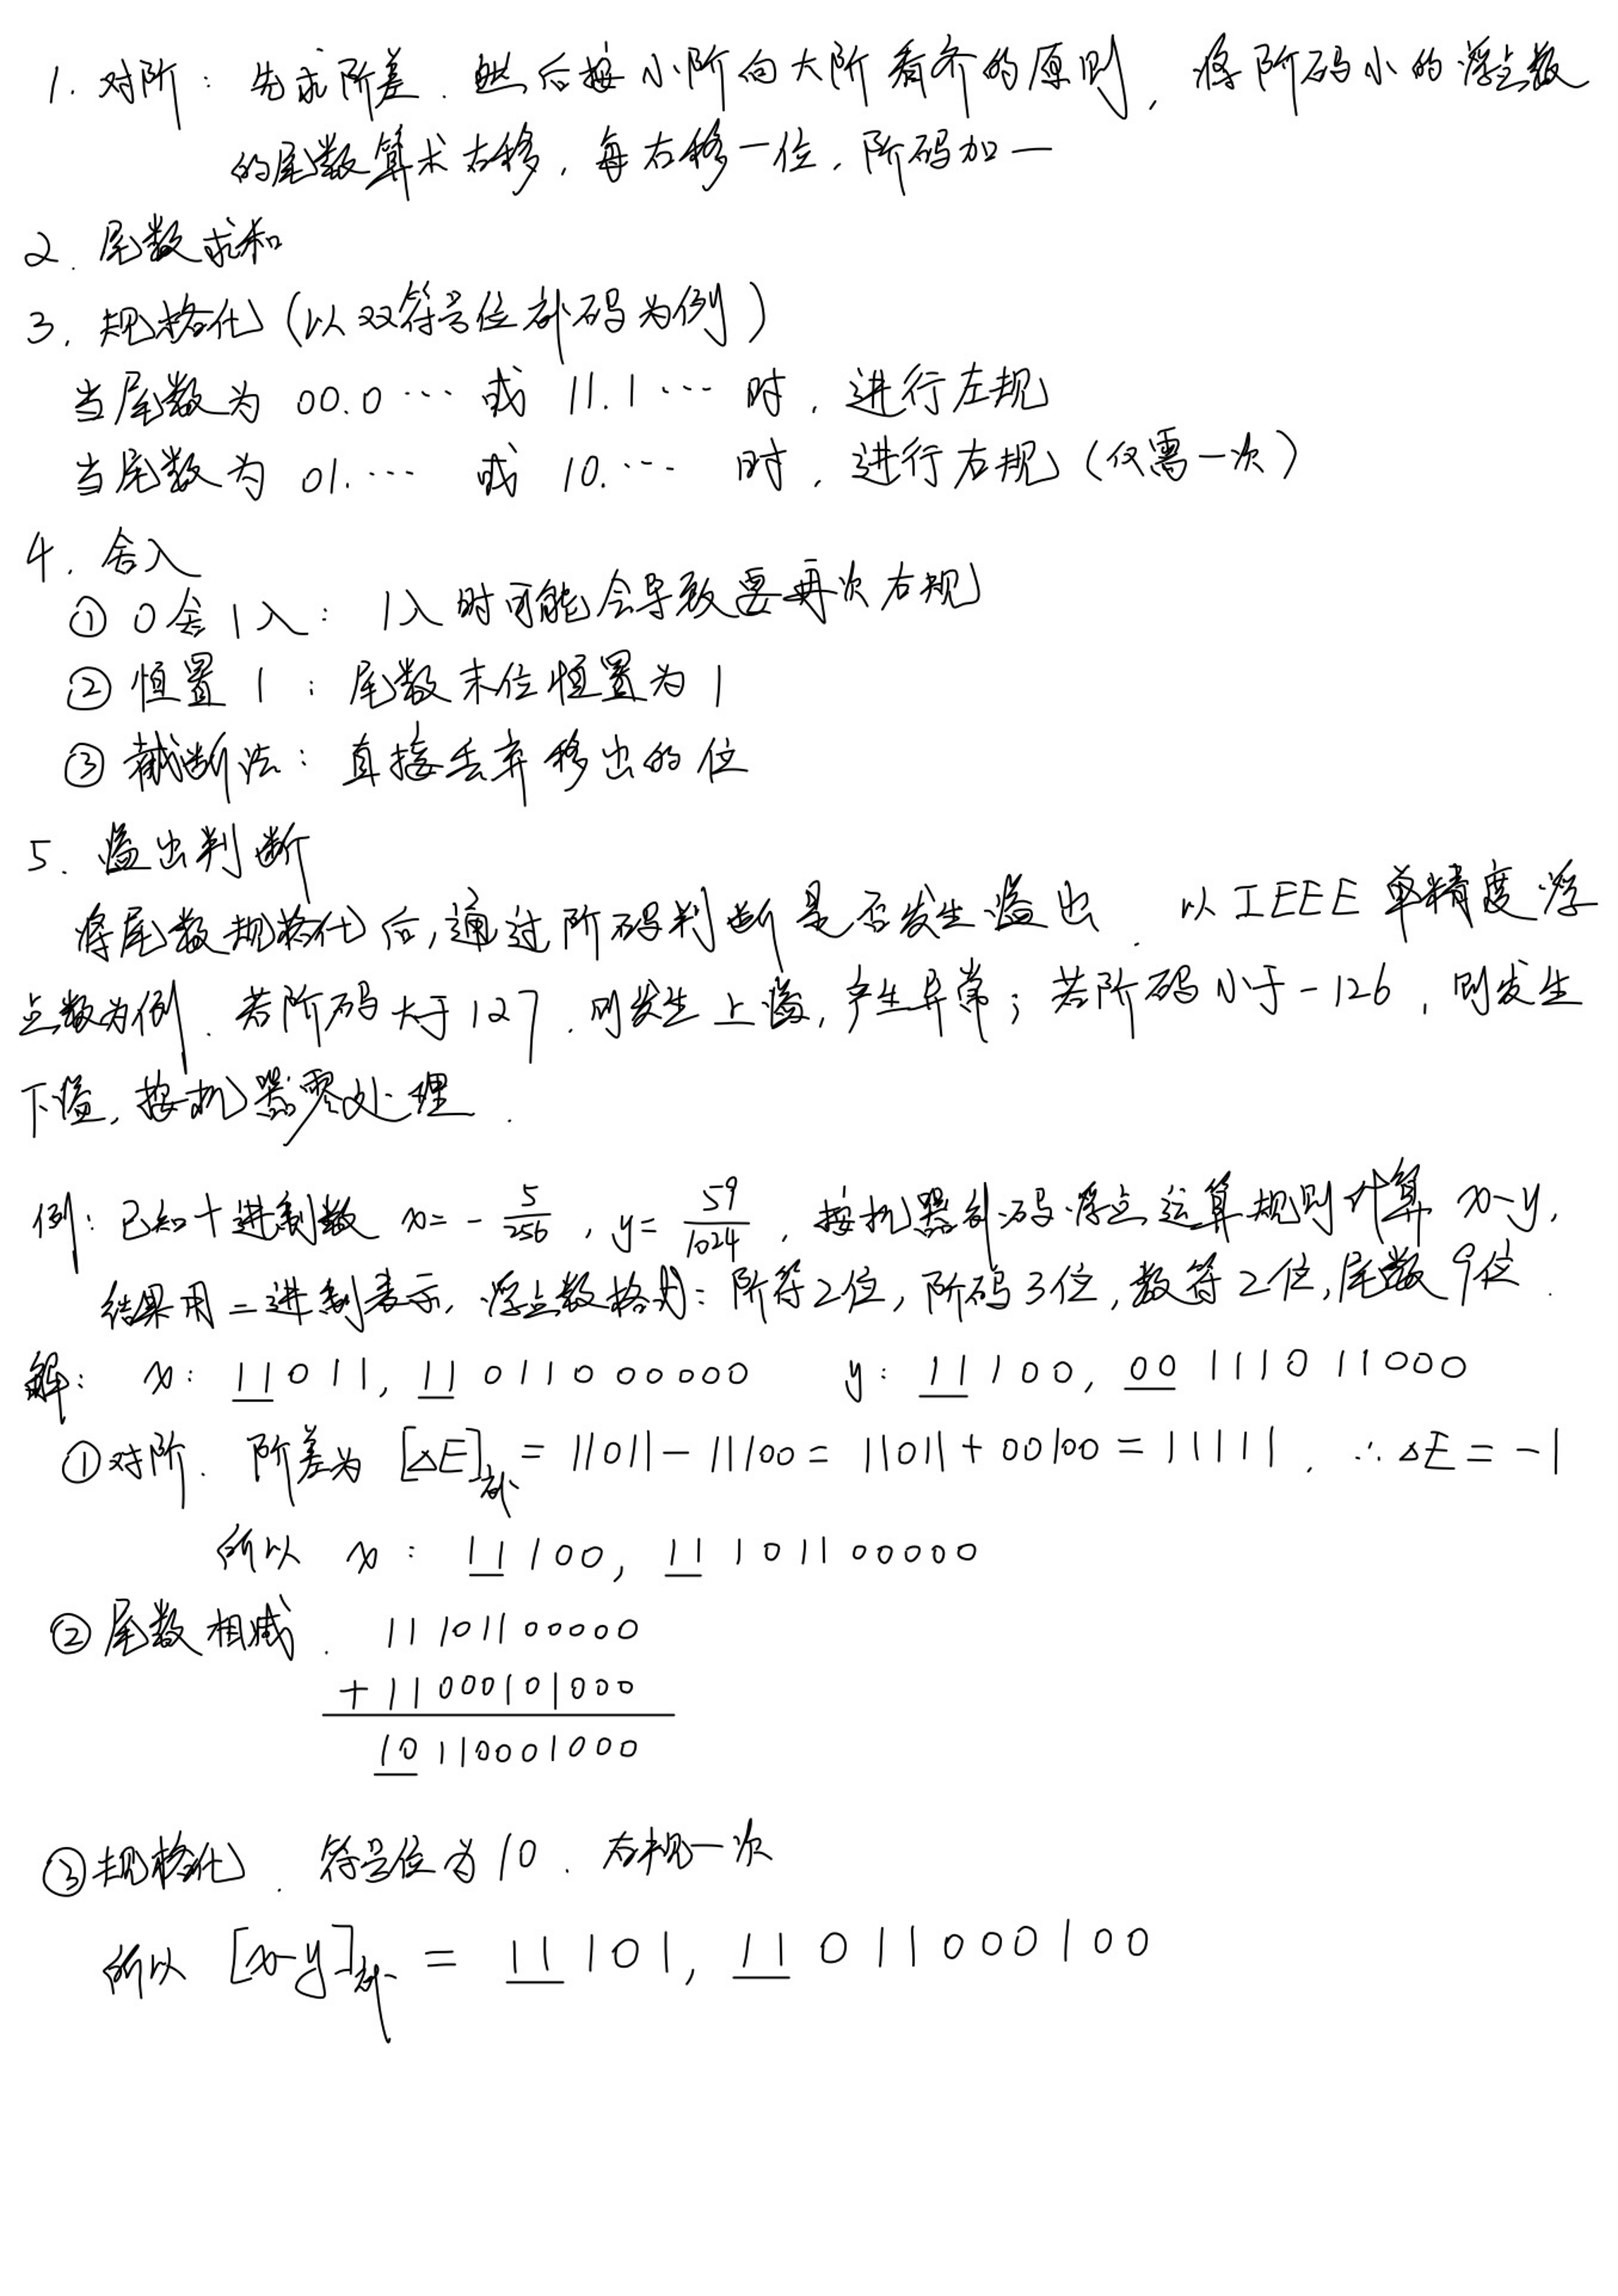 1. 对阶：先求阶差．然后按小阶向大阶看齐的原则，将阶码小的浮点数
的尾数算术右移，每右移一位，阶码加一
2. 尾数求和
3. 规格化（以双符号位补码为例）
当尾数为 00.0… 或 11.1… 时，进行左规
当尾数为 01.… 或 10.… 时，进行右规（仅需一次）
4. 舍入
① 0舍1入： 1入时可能会导致要再次右规
② 恒置1：尾数末位恒置为1
③ 截断法：直接丢弃移出的位
5. 溢出判断
将尾数规格化后，通过阶码判断是否发生溢出．以IEEE单精度浮
点数为例．若阶码大于127．则发生上溢，产生异常；若阶码小于-126，则发生
下溢，按机器零处理．
例：已知十进制数 x=-5/256，y=59/1024，按机器补码浮点运算规则计算x-y，
结果用二进制表示，浮点数格式：阶符2位，阶码3位，数符2位，尾数9位．
解： x: 11011, 11011000000 y: 11100, 00111011000
①对阶．阶差为 [ΔE]补 = 11011-11100 = 11011+00100 = 11111．∴ΔE=-1
所以 x: 11100, 11101100000
②尾数相减．11101100000
+11000101000
10110001000
③规格化．符号位为10．右规一次
所以 [x-y]补 = 11101, 11011000100